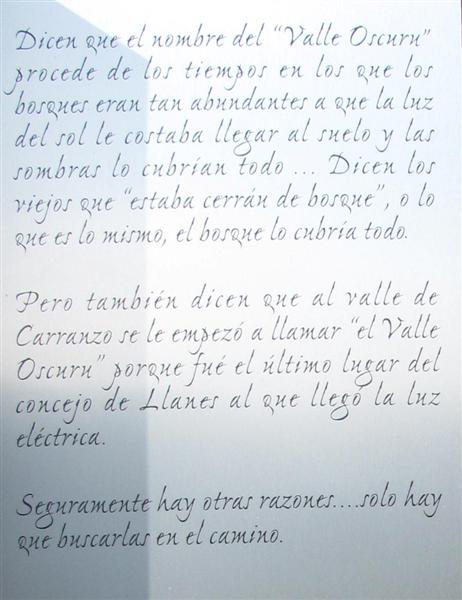 Dicen que el nombre del "Valle Oscuru"
procede de los tiempos en los que los
bosques eran tan abundantes a que la luz
del sol le costaba llegar al suelo y las
sombras lo cubrían todo ... Dicen los
viejos que "estaba cerrán de bosque", o lo
que es lo mismo, el bosque lo cubría todo.
Pero también dicen que al valle de
Carranzo se le empezó a llamar "el Valle
Oscuru" porque fué el último lugar del
concejo de Llanes al que llegó la luz
eléctrica.
Seguramente hay otras razones....solo hay
que buscarlas en el camino.